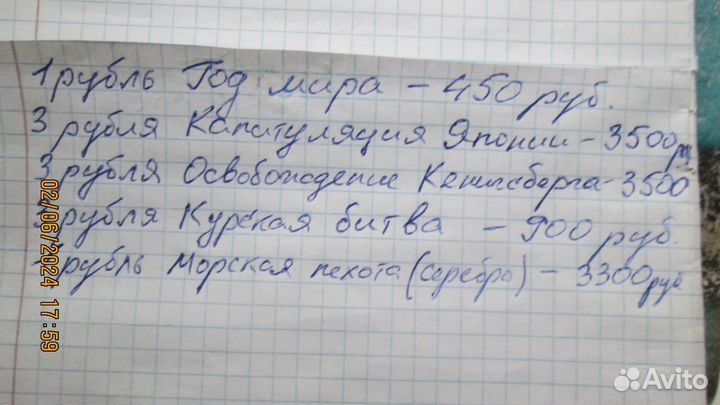 1 рубль Год мира - 450 руб.
3 рубля Капитуляция Японии - 3500 р
3 рубля Освобождение Кенигсберга - 3500
рубля Курская битва - 900 руб.
рубль Морская пехота (серебро) - 3300 руб
02/06/2024 17:59
Avito